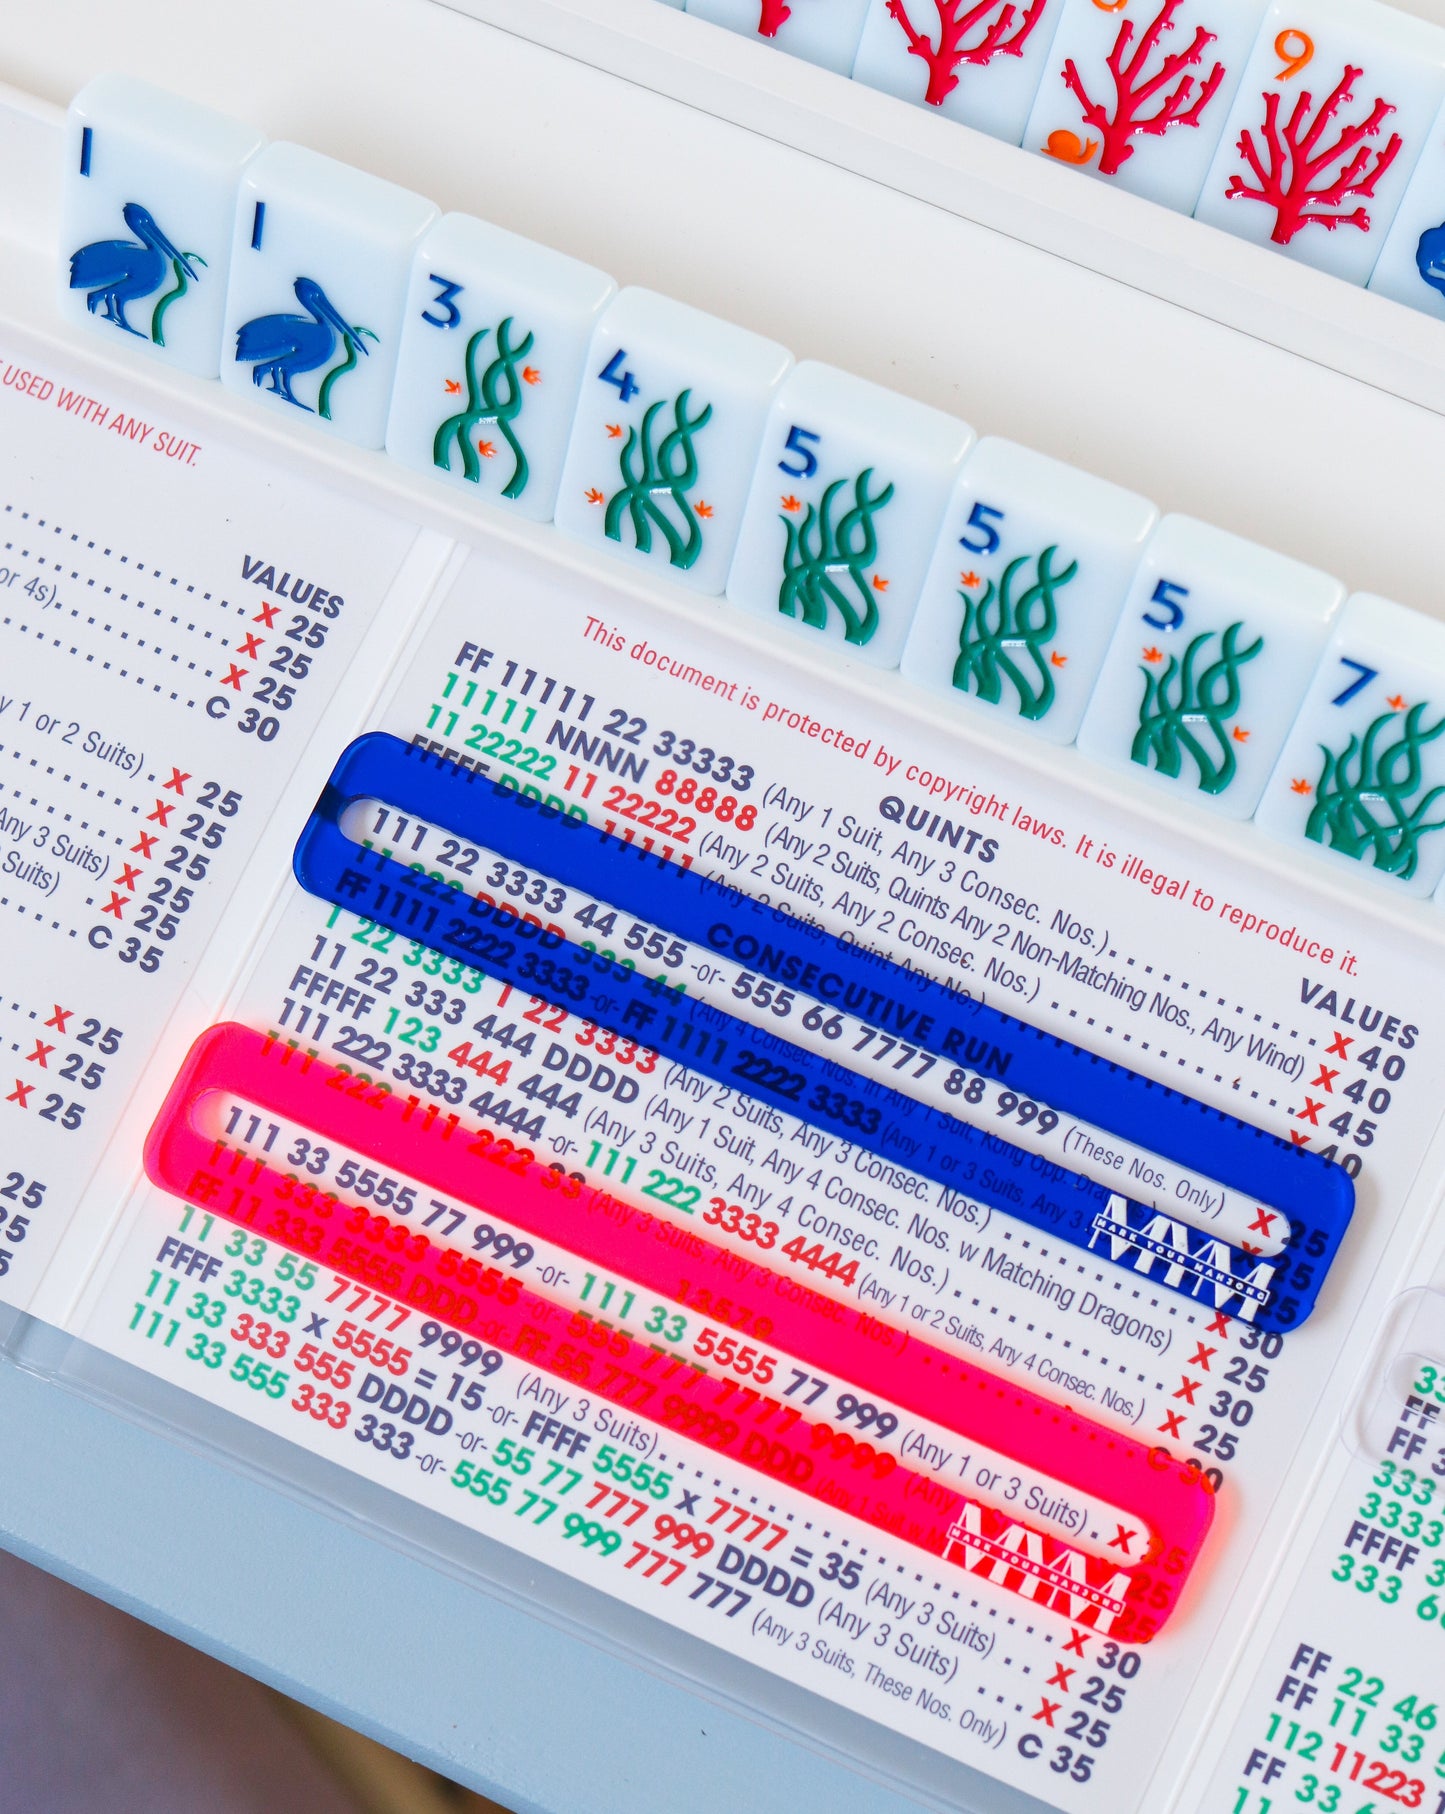 9
1
1
3
4
5
5
5
7
USED WITH ANY SUIT.
VALUES
X 25
X 25
or 4s) X 25
C 30
1 or 2 Suits) X 25
X 25
X 25
Any 3 Suits) X 25
Suits) X 25
C 35
X 25
X 25
X 25
25
This document is protected by copyright laws. It is illegal to reproduce it.
QUINTS
VALUES
FF 11111 22 33333 (Any 1 Suit, Any 3 Consec. Nos.) X 40
11111 NNNN 88888 (Any 2 Suits, Quints Any 2 Non-Matching Nos., Any Wind) X 40
11 22222 11 22222 (Any 2 Suits, Any 2 Consec. Nos.) X 45
FFFFF DDDD 11111 (Any 2 Suits, Quint Any No.) X 40
CONSECUTIVE RUN
111 22 3333 44 555 -or- 555 66 7777 88 999 (These Nos. Only) X 25
11 222 DDDD 333 44 (Any 4 Consec. Nos. in Any 1 Suit, Kong Opp. Dragons) X 25
FF 1111 2222 3333 -or- FF 1111 2222 3333 (Any 1 or 3 Suits, Any 3 25
1 22 3333 1 22 3333 (Any 2 Suits, Any 3 Consec. Nos.) X 30
11 22 333 444 DDDD (Any 1 Suit, Any 4 Consec. Nos. w Matching Dragons) X 25
FFFFF 123 444 444 (Any 3 Suits, Any 4 Consec. Nos.) X 30
111 222 3333 4444 -or- 111 222 3333 4444 (Any 1 or 2 Suits, Any 4 Consec. Nos.) X 25
111 222 111 222 33 (Any 3 Suits, Any 3 Consec. Nos.) C 30
MARK YOUR MAHJONG
13579
111 33 5555 77 999 -or- 111 33 5555 77 999 (Any 1 or 3 Suits) X 25
111 333 3333 5555 -or- 555 777 7777 9999 (Any 25
FF 11 333 5555 DDD -or- FF 55 777 9999 DDD (Any 1 Suit w 25
11 33 55 7777 9999 (Any 3 Suits) X 30
FFFF 3333 x 5555 = 15 -or- FFFF 5555 x 7777 = 35 (Any 3 Suits) X 25
11 33 333 555 DDDD -or- 55 77 777 999 DDDD (Any 3 Suits) X 25
111 33 555 333 333 -or- 555 77 999 777 777 (Any 3 Suits, These Nos. Only) C 35
MARK YOUR MAHJONG
FF
333
3333
FFFF
333
FF 22 46
FF 11 33
112 11223
FF 33
11